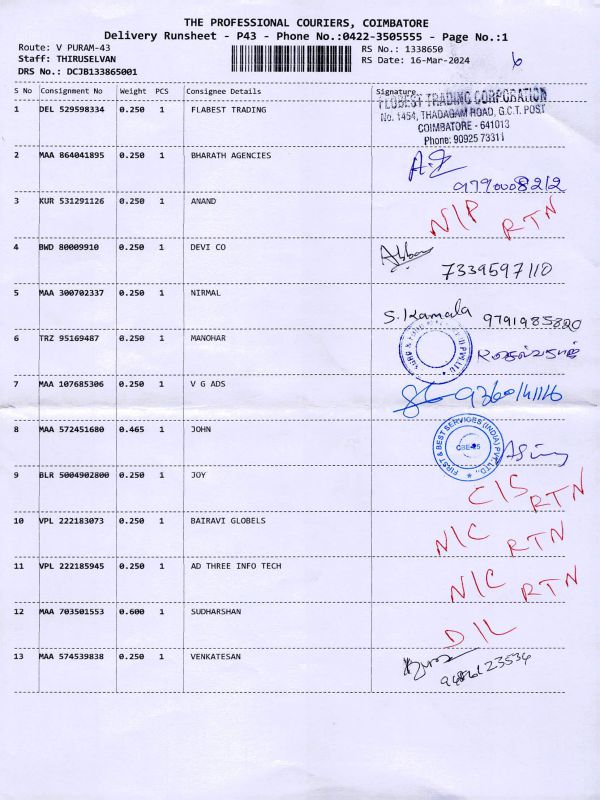 THE PROFESSIONAL COURIERS, COIMBATORE
Delivery Runsheet - P43 - Phone No.:0422-3505555 - Page No.:1
Route: V PURAM-43
Staff: THIRUSELVAN
DRS No.: DCJB133865001
RS No.: 1338650
RS Date: 16-Mar-2024
6
S No Consignment No Weight PCS Consignee Details Signature
1 DEL 529598334 0.250 1 FLABEST TRADING
FLOBEST TRADING CORPORATION
No. 1454, THADAGAM ROAD, G.C.T. POST
COIMBATORE - 641013
Phone: 90925 73311
2 MAA 864041895 0.250 1 BHARATH AGENCIES
9790008212
3 KUR 531291126 0.250 1 ANAND N/P RTN
4 BWD 80009910 0.250 1 DEVI CO
7339597110
5 MAA 300702337 0.250 1 NIRMAL S. Kamala 9791985820
6 TRZ 95169487 0.250 1 MANOHAR
7 MAA 107685306 0.250 1 V G ADS
8 MAA 572451680 0.465 1 JOHN
FIRST & BEST SERVICES (INDIA) PVT. LTD.
CBE-25
9 BLR 5004902800 0.250 1 JOY C/S RTN
10 VPL 222183073 0.250 1 BAIRAVI GLOBELS N/C RTN
11 VPL 222185945 0.250 1 AD THREE INFO TECH N/C RTN
12 MAA 703501553 0.600 1 SUDHARSHAN D/L
13 MAA 574539838 0.250 1 VENKATESAN